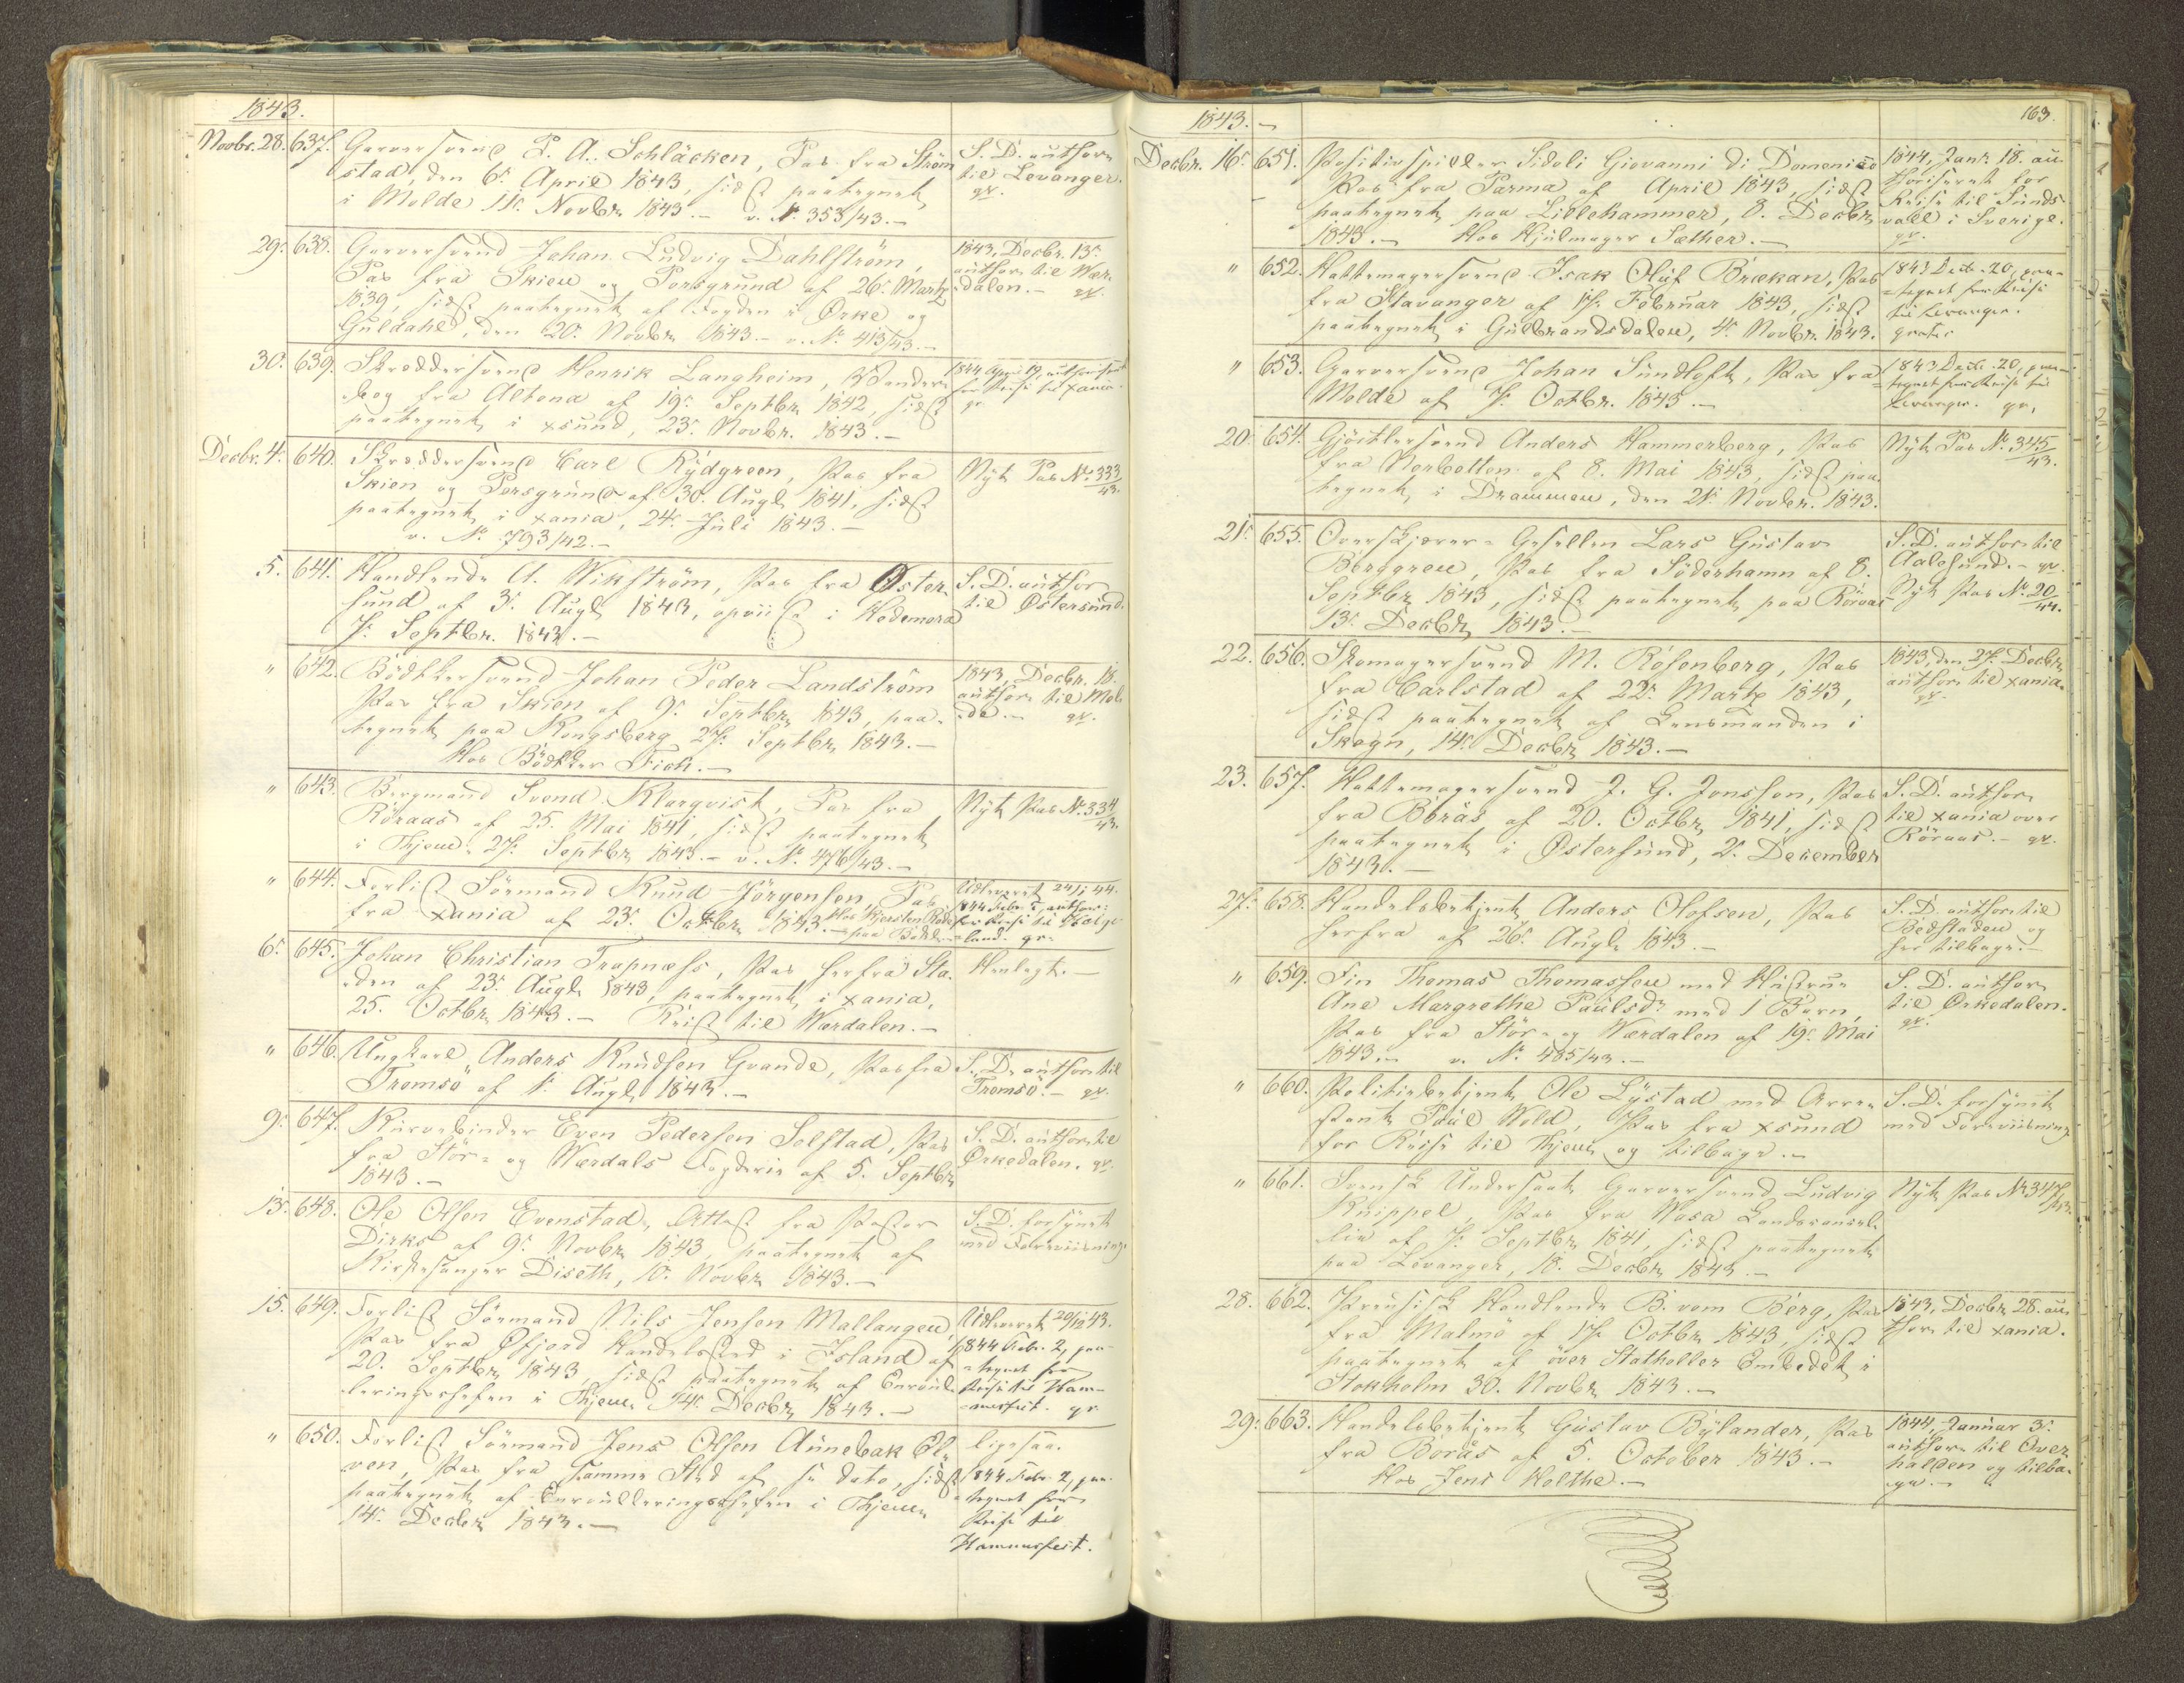 1843.
Novbr. 28. 637. Garversvend P. A. Schläcken, Pas fra Ström-
stad, den 6te April 1843, sidst paategnet
i Molde 11te Novbr 1843.- v. No 353/43.-
S. D. author.
til Levanger.
gr.
29. 638. Garversvend Johan Ludvig Dahlström,
Pas fra Skien og Porsgrund af 26 Martz
1839, sidst paategnet af Fogden i Orke og
Guldahl, den 20. Novbr 1843.- v. No 413/43.-
1843, Decbr. 13.
author. til Wær-
dalen.- gr.
30. 639. Skreddersvend Henrik Langheim, Wandre-
bog fra Altona af 19. Septbr 1842, sidst
paategnet i xsund, 23. Novbr. 1843.-
1844 Apr. 19, authoriseret
for Reise til xania.
gr.
Decbr. 4. 640. Skreddersvend Carl Rydgreen, Pas fra
Skien og Porsgrund af 30. Augt 1841, sidst
paategnet i xania, 24. Juli 1843.-
v. No 793/42.-
Nyt Pas No 333/43.
5. 641. Handlende A. Wikström, Pas fra Öster-
sund af 3. Augt 1843, opviist i Hedemora
7. Septbr. 1843.-
S. D. author
til Östersund.
" 642. Bödkersvend Johan Peder Landström
Pas fra Skien af 9. Septbr 1843, paa-
tegnet paa Kongsberg 27. Septbr 1843.-
Hos Bödker Fick.-
1843, Decbr. 18.
author. til Mol-
de.- gr.
" 643. Bergmand Svend Klarqvist, Pas fra
Röraas af 25. Mai 1841, sidst paategnet
i Thjem, 27. Septbr 1843.- v. No 476/43.-
Nyt Pas No 334/43.
" 644. Forlist Sömand Knud Jörgensen, Pas
fra xania af 23. Octbr 1843.- Hos Kjersten
paa
Udleveret 24/1 44.
1844 Febr. 2, author:
for Reise til Helge-
land. gr.
6. 645. Johan Christian Trapnæss, Pas herfra Sta-
den af 23. Augt 1843, paategnet i xania,
25. Octbr 1843.- Reist til Værdalen.-
Henlagt.-
" 646. Ungkarl Anders Knudsen Grande, Pas fra
Tromsö af 1. Augt 1843.-
S. D. author. til
Tromsö.- gr.
9. 647. Kurvebinder Even Pedersen Solstad, Pas
fra Stör- og Værdals Fogderie af 5. Septbr
1843.-
S. D. author. til
Orkedalen. gr.
13. 648. Ole Olsen Evenstad, Attest fra Pastor
Dirks af 9. Novbr 1843, paategnet af
Kirkesanger Diseth, 10. Novbr 1843.-
S. D. forsynet
med Foreviisning.
15. 649. Forlist Sömand Nils Jensen Mallangen,
Pas fra Öfjord Handelssted i Island af
20. Septbr 1843, sidst paategnet af Enroul-
leringschefen i Thjem, 14. Decbr 1843.-
Udleveret 20/12 43.
1844 Febr. 2, paa-
tegnet for
Reise til Ham-
merfest. gr.
" 650. Forlist Sömand Jens Olsen Aunebak El-
ven, Pas fra samme Sted af s. dato, sidst
paategnet af Enroulleringschefen i Thjem
14. Decbr 1843.-
ligesaa.
1844 Febr. 2, paa-
tegnet for
Reise til
Hammerfest.
1843.-
163.
Decbr. 16. 651. Positivspiller Sidoli Giovanni di Domenico
Pas fra Parma af April 1843, sidst
paategnet paa Lillehammer, 8. Decbr
1843.- Hos Hjulmager Sæther.-
1844, Janr. 18. au-
thoriseret for
Reise til Sunds-
vall i Sverige.
gr.
" 652. Hattemagersvend Isak Oluf Brekan, Pas
fra Stavanger af 17. Februar 1843, sidst
paategnet i Gulbrandsdalen, 4. Novbr. 1843.
1843 Decbr. 20, paa-
tegnet for Reise
til Levanger.
gratis
" 653. Garversvend Johan Sundloft, Pas fra
Molde af 7. Octbr. 1843.-
1843 Decbr. 20, paa-
tegnet for Reise til
Levanger. gr.
20. 654. Gjörtlersvend Anders Hammerberg, Pas
fra Norbotten af 8. Mai 1843, sidst paa-
tegnet i Drammen, den 21. Novbr. 1843.
Nyt Pas No 345/43.
21. 655. Overskjærer-Gesellen Lars Gustav
Borgren, Pas fra Söderhamn af 8.
Septbr 1843, sidst paategnet paa Röraas
13. Decbr 1843.-
S. D. author. til
Aalesund.- gr.
Nyt Pas No 20/44.
22. 656. Skomagersvend M. Rosenberg, Pas
fra Carlstad af 22. Martz 1843,
sidst paategnet af Lensmanden i
Skogn, 14. Decbr 1843.-
1843, den 27. Decbr
author. til xania.
gr.
23. 657. Hattemagersvend J. G. Jonsson, Pas
fra Borås af 20. Octbr 1841, sidst
paategnet i Östersund, 2. December
1843.-
S. D. author.
til xania over
Röraas.- gr.
27. 658. Handelsbetjent Anders Olofsen, Pas
herfra af 26. Augt 1843.-
S. D. author. til
Bedstaden og
her tilbage.-
" 659. Fin Thomas Thomassen med Hustrue
Ane Margrethe Paulsdr med 1 Barn,
Pas fra Stör- og Værdalen af 19. Mai
1843.- v. No 485/43.-
S. D. author.
til Orkedalen.
gr.
" 660. Politiebetjent Ole Lystad med Arre-
stant Paul Wold, Pas fra xsund
for Reise til Thjem og tilbage.-
S. D. forsynet
med Foreviisning.
" 661. Svensk Undersaat Garversvend Ludvig
Knippel, Pas fra Wasa Landscansel-
lie af 7. Septbr 1841, sidst paategnet
paa Levanger, 18. Decbr 1843.-
Nyt Pas No 347/43.
28. 662. Preusisk Handlende B. vom Berg, Pas
fra Malmö af 17. Octbr 1843, sidst
paategnet af över Statholler Embedet i
Stokholm 30. Novbr 1843.-
1843, Decbr 28. au-
thor. til xania.
29. 663. Handelsbetjent Gustav Bylander, Pas
fra Borås af 5. October 1843.-
Hos Jens Holthe.-
1844, Januar 3.
author. til Over-
halden og tilba-
ge.-